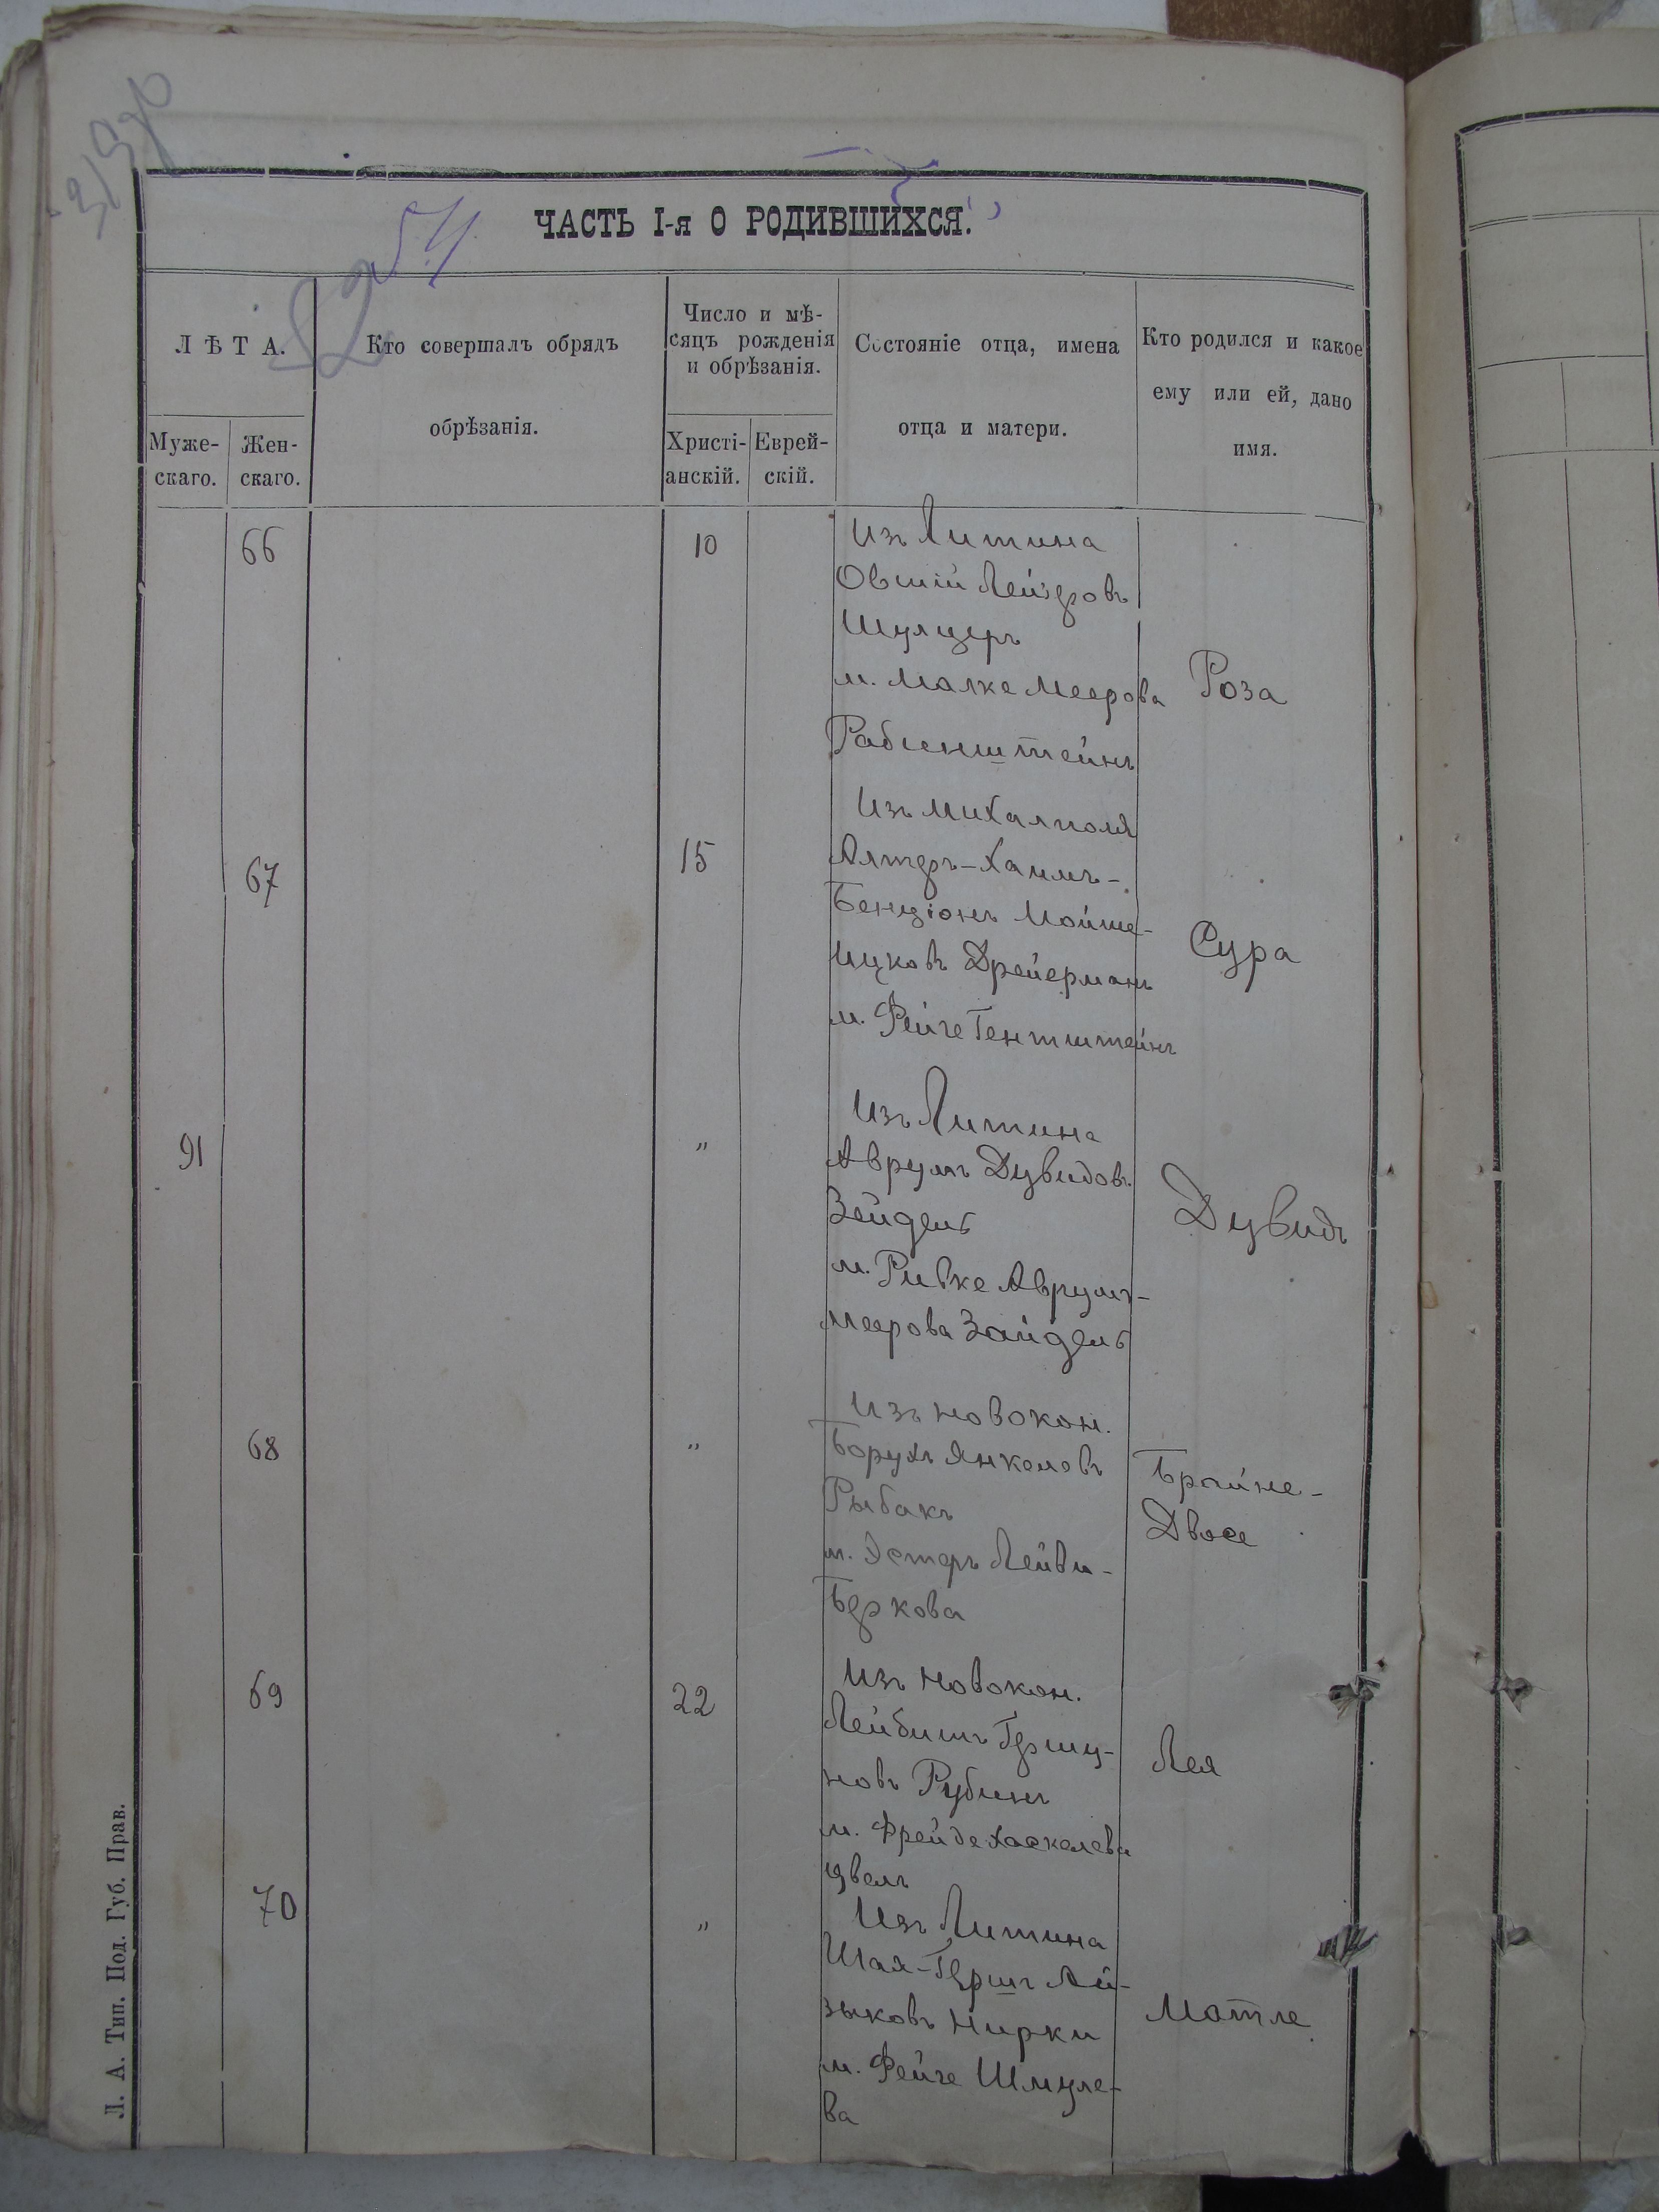 54
ЧАСТЬ I-я О РОДИВШИХСЯ.
ЛѢТА.
Муже-
скаго.
Жен-
скаго.
Кто совершалъ обрядъ
обрѣзанія.
Число и мѣ-
сяцъ рожденія
и обрѣзанія.
Христі-
анскій.
Еврей-
скій.
Состояніе отца, имена
отца и матери.
Кто родился и какое
ему или ей, дано
имя.
66
10
Изъ Литина
Овшій Лейзеровъ
Шулцеръ
м. Малке Меерова
Рабіенштейнъ
Роза
67
15
Изъ Михалполя
Алтеръ-Хаимъ-
Бенціонъ Мойше-
Ицковъ Дрейерманъ
м. Фейге Гентштейнъ
Сура
91
"
Изъ Литина
Аврумъ Дувидовъ
Зейдель
м. Ривке Аврумъ-
Меерова Зайдель
Дувидъ
68
"
Изъ Новокон.
Борухъ Янкелевъ
Рыбакъ
м. Эстеръ Лейви-
Беркова
Брайне-
Двосе
69
22
Изъ Новокон.
Лейбишъ Гершу-
новъ Рубинъ
м. Фрейде Хаскелева
Лея
70
"
Изъ Литина
Шая-Гершъ Ай-
зыковъ Нирки
м. Фейге Шмуле-
ва
Матле
Л. А. Тип. Под. Губ. Прав.